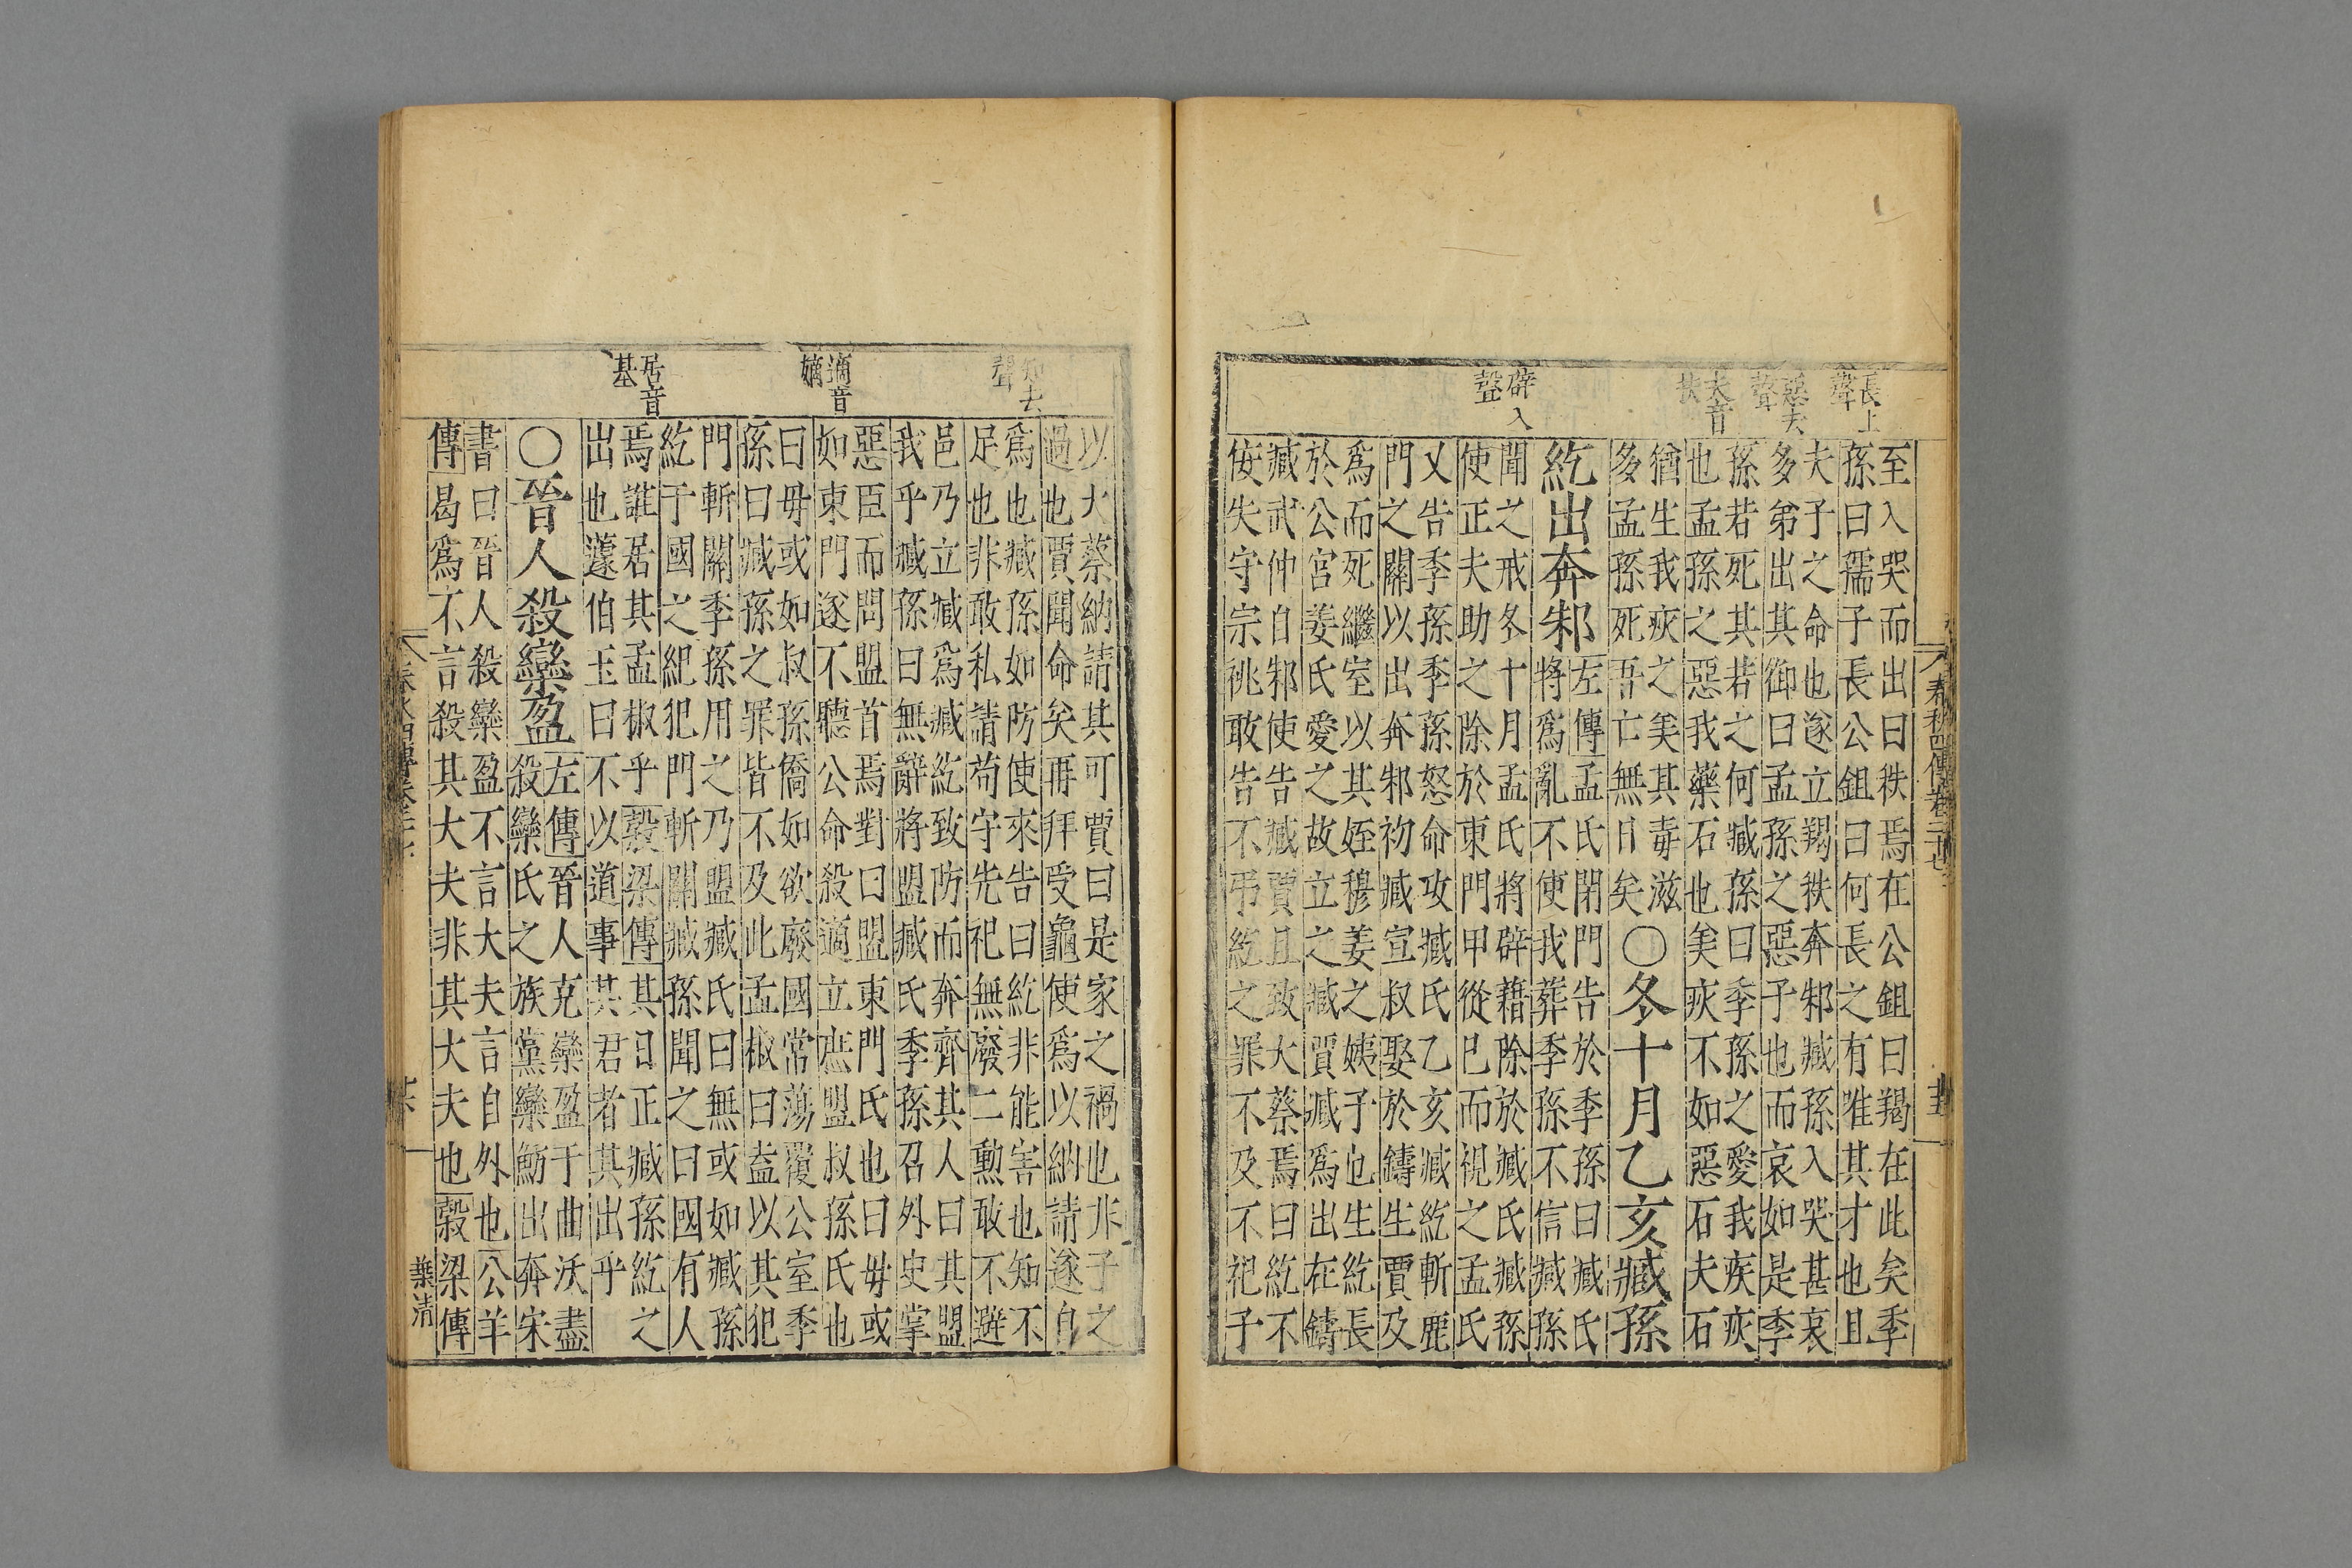 長上聲
惡去聲
夫音扶
辟入聲
至入哭而出曰秩焉在公鉏曰羯在此矣季
孫曰孺子長公鉏曰何長之有唯其才也且
夫子之命也遂立羯秩奔邾臧孫入哭甚哀
多弟出其御曰孟孫之惡子也而哀如是季
孫若死其若之何臧孫曰季孫之愛我疾疢
也孟孫之惡我藥石也美疢不如惡石夫石
猶生我疢之美其毒滋
多孟孫死吾亡無日矣
○冬十月乙亥臧孫
紇出奔邾
左傳孟氏閉門告於季孫曰臧氏
將爲亂不使我葬季孫不信臧孫
聞之戒冬十月孟氏將辟藉除於臧氏臧孫
使正夫助之除於東門甲從已而視之孟氏
又告季孫季孫怒命攻臧氏乙亥臧紇斬鹿
門之關以出奔邾初臧宣叔娶於鑄生賈及
爲而死繼室以其姪穆姜之姨子也生紇長
於公宮姜氏愛之故立之臧賈臧爲出在鑄
臧武仲自邾使告臧賈且致大蔡焉曰紇不
佞失守宗祧敢告不弔紇之罪不及不祀子
知去聲
適音嫡
居音基
以大蔡納請其可賈曰是家之禍也非子之
過也賈聞命矣再拜受龜使爲以納請遂自
爲也臧孫如防使來告曰紇非能害也知不
足也非敢私請苟守先祀無廢二勳敢不避
邑乃立臧爲臧紇致防而奔齊其人曰其盟
我乎臧孫曰無辭將盟臧氏季孫召外史掌
惡臣而問盟首焉對曰盟東門氏也曰毋或
如東門遂不聽公命殺適立庶盟叔孫氏也
曰毋或如叔孫僑如欲廢國常蕩覆公室季
孫曰臧孫之罪皆不及此孟椒曰盍以其犯
門斬關季孫用之乃盟臧氏曰無或如臧孫
紇于國之紀犯門斬關臧孫聞之曰國有人
焉誰居其孟椒乎穀梁傳其日正臧孫紇之
出也蘧伯玉曰不以道事其君者其出乎
○晉人殺欒盈
左傳晉人克欒盈于曲沃盡
殺欒氏之族黨欒魴出奔宋
書曰晉人殺欒盈不言大夫言自外也公羊
傳曷爲不言殺其大夫非其大夫也穀梁傳
葉清